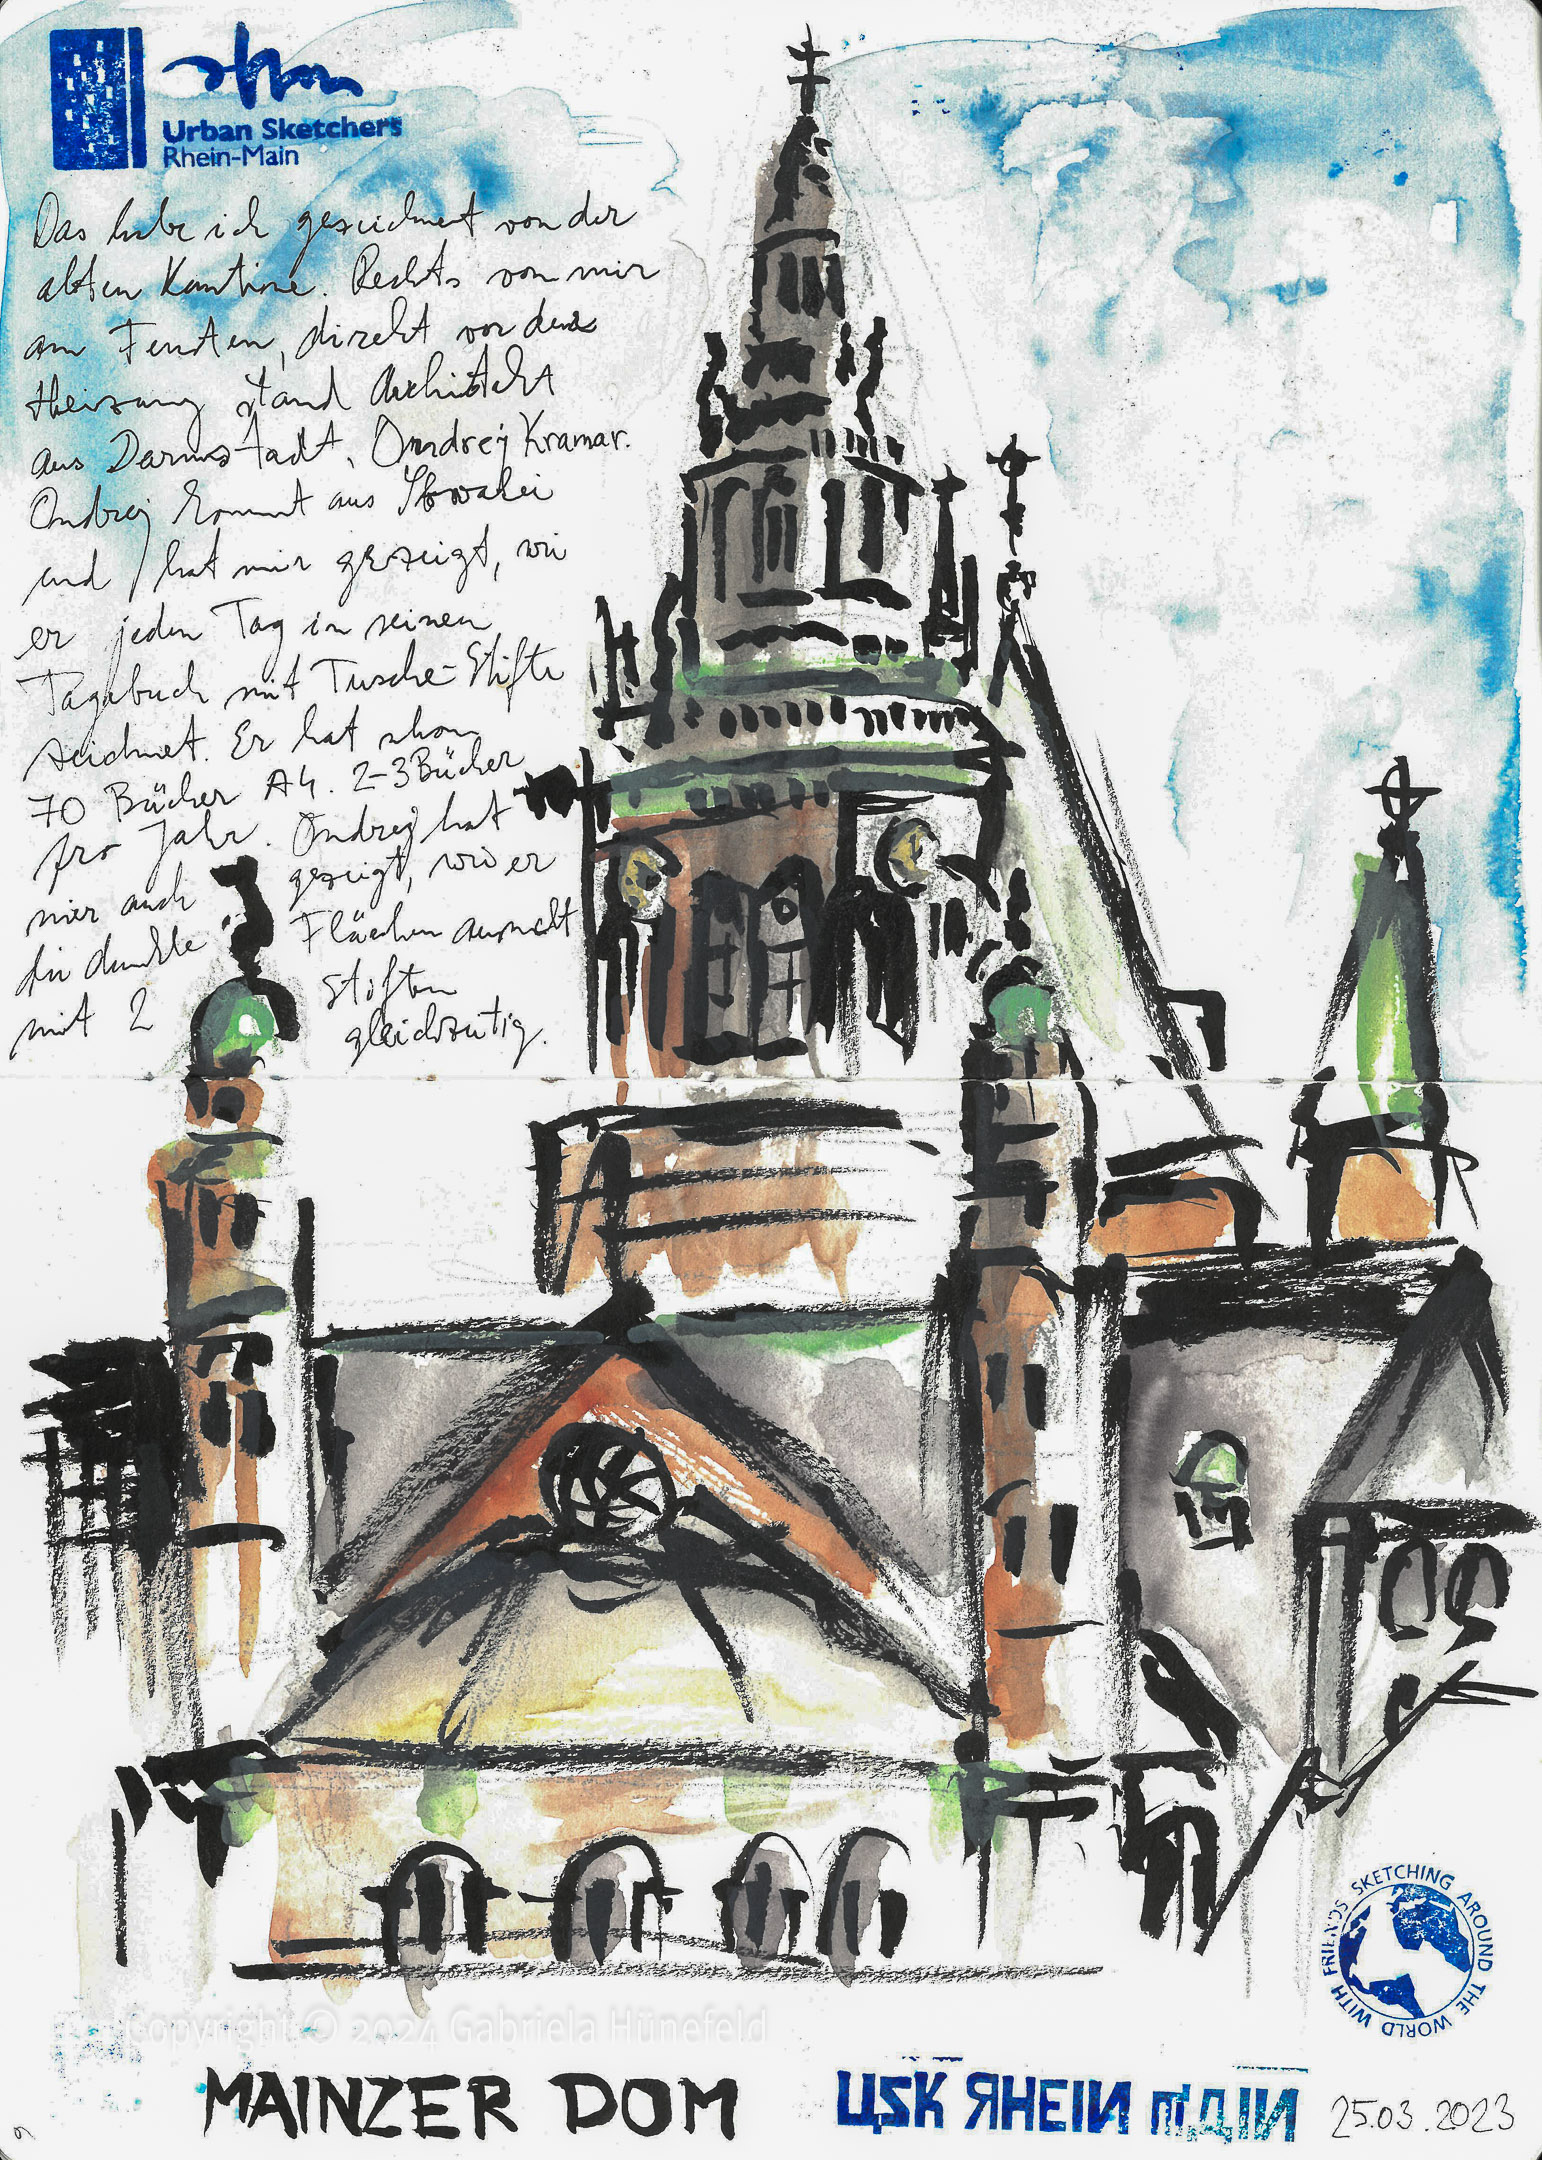 Urban Sketchers
Rhein-Main
Das habe ich gezeichnet von der
alten Kantine. Rechts von mir
am Fenster, direkt vor der
Heizung stand Architekt
aus Darmstadt, Ondrej Kramar.
Ondrej kommt aus Slowakei
und hat mir gezeigt, wie
er jeden Tag in seinem
Tagebuch mit Tusche-Stifte
zeichnet. Er hat schon
70 Bücher A4. 2-3 Bücher
pro Jahr. Ondrej hat
mir auch gezeigt, wie er
die dunkle Flächen ausmalt
mit 2 Stiften
gleichzeitig.
SKETCHING AROUND THE WORLD WITH FRIENDS
Copyright © 2024 Gabriela Hünefeld
MAINZER DOM
USK RHEIN MAIN
25.03.2023